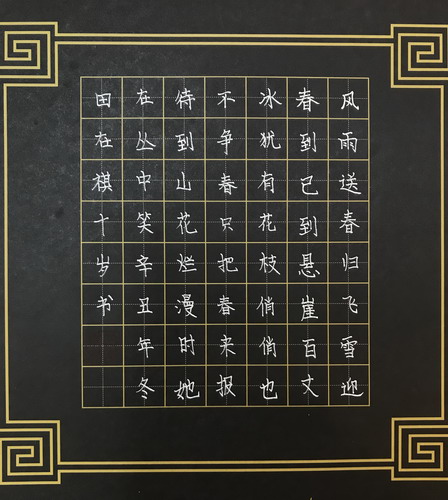 风雨送春归飞雪迎
春到已到悬崖百丈
冰犹有花枝俏俏也
不争春只把春来报
待到山花烂漫时她
在丛中笑辛丑年冬
田在棋十岁书